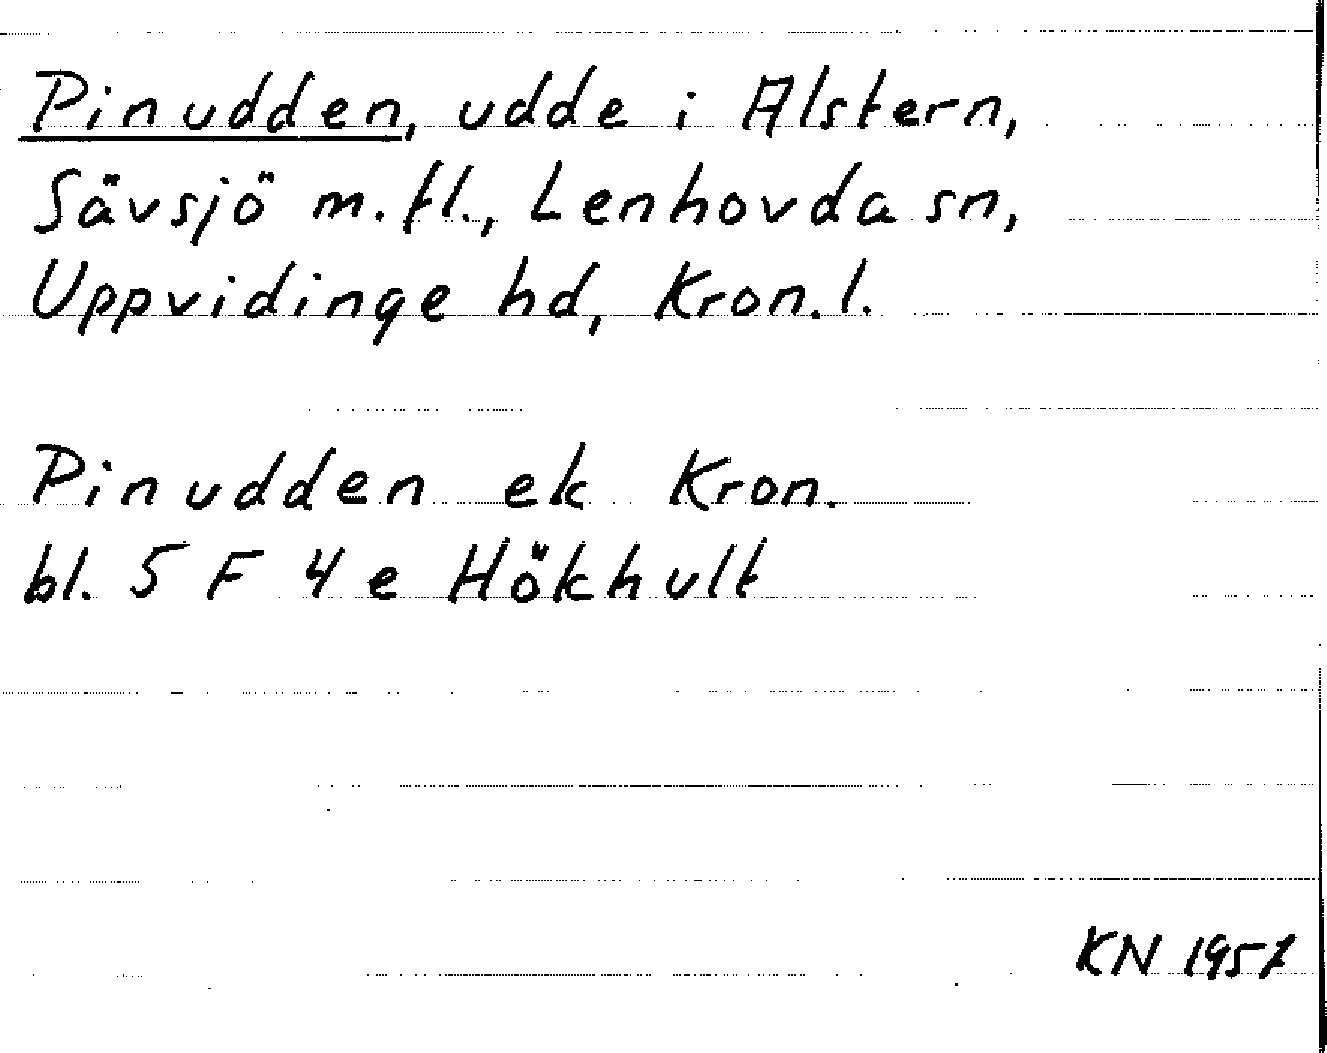 Pinudden, udde i Alstern,
Sävsjö m.fl., Lenhovda sn,
Uppvidinge hd, Kron.l.
Pinudden ek Kron.
bl. 5 F 4 e Hökhult
KN 1957